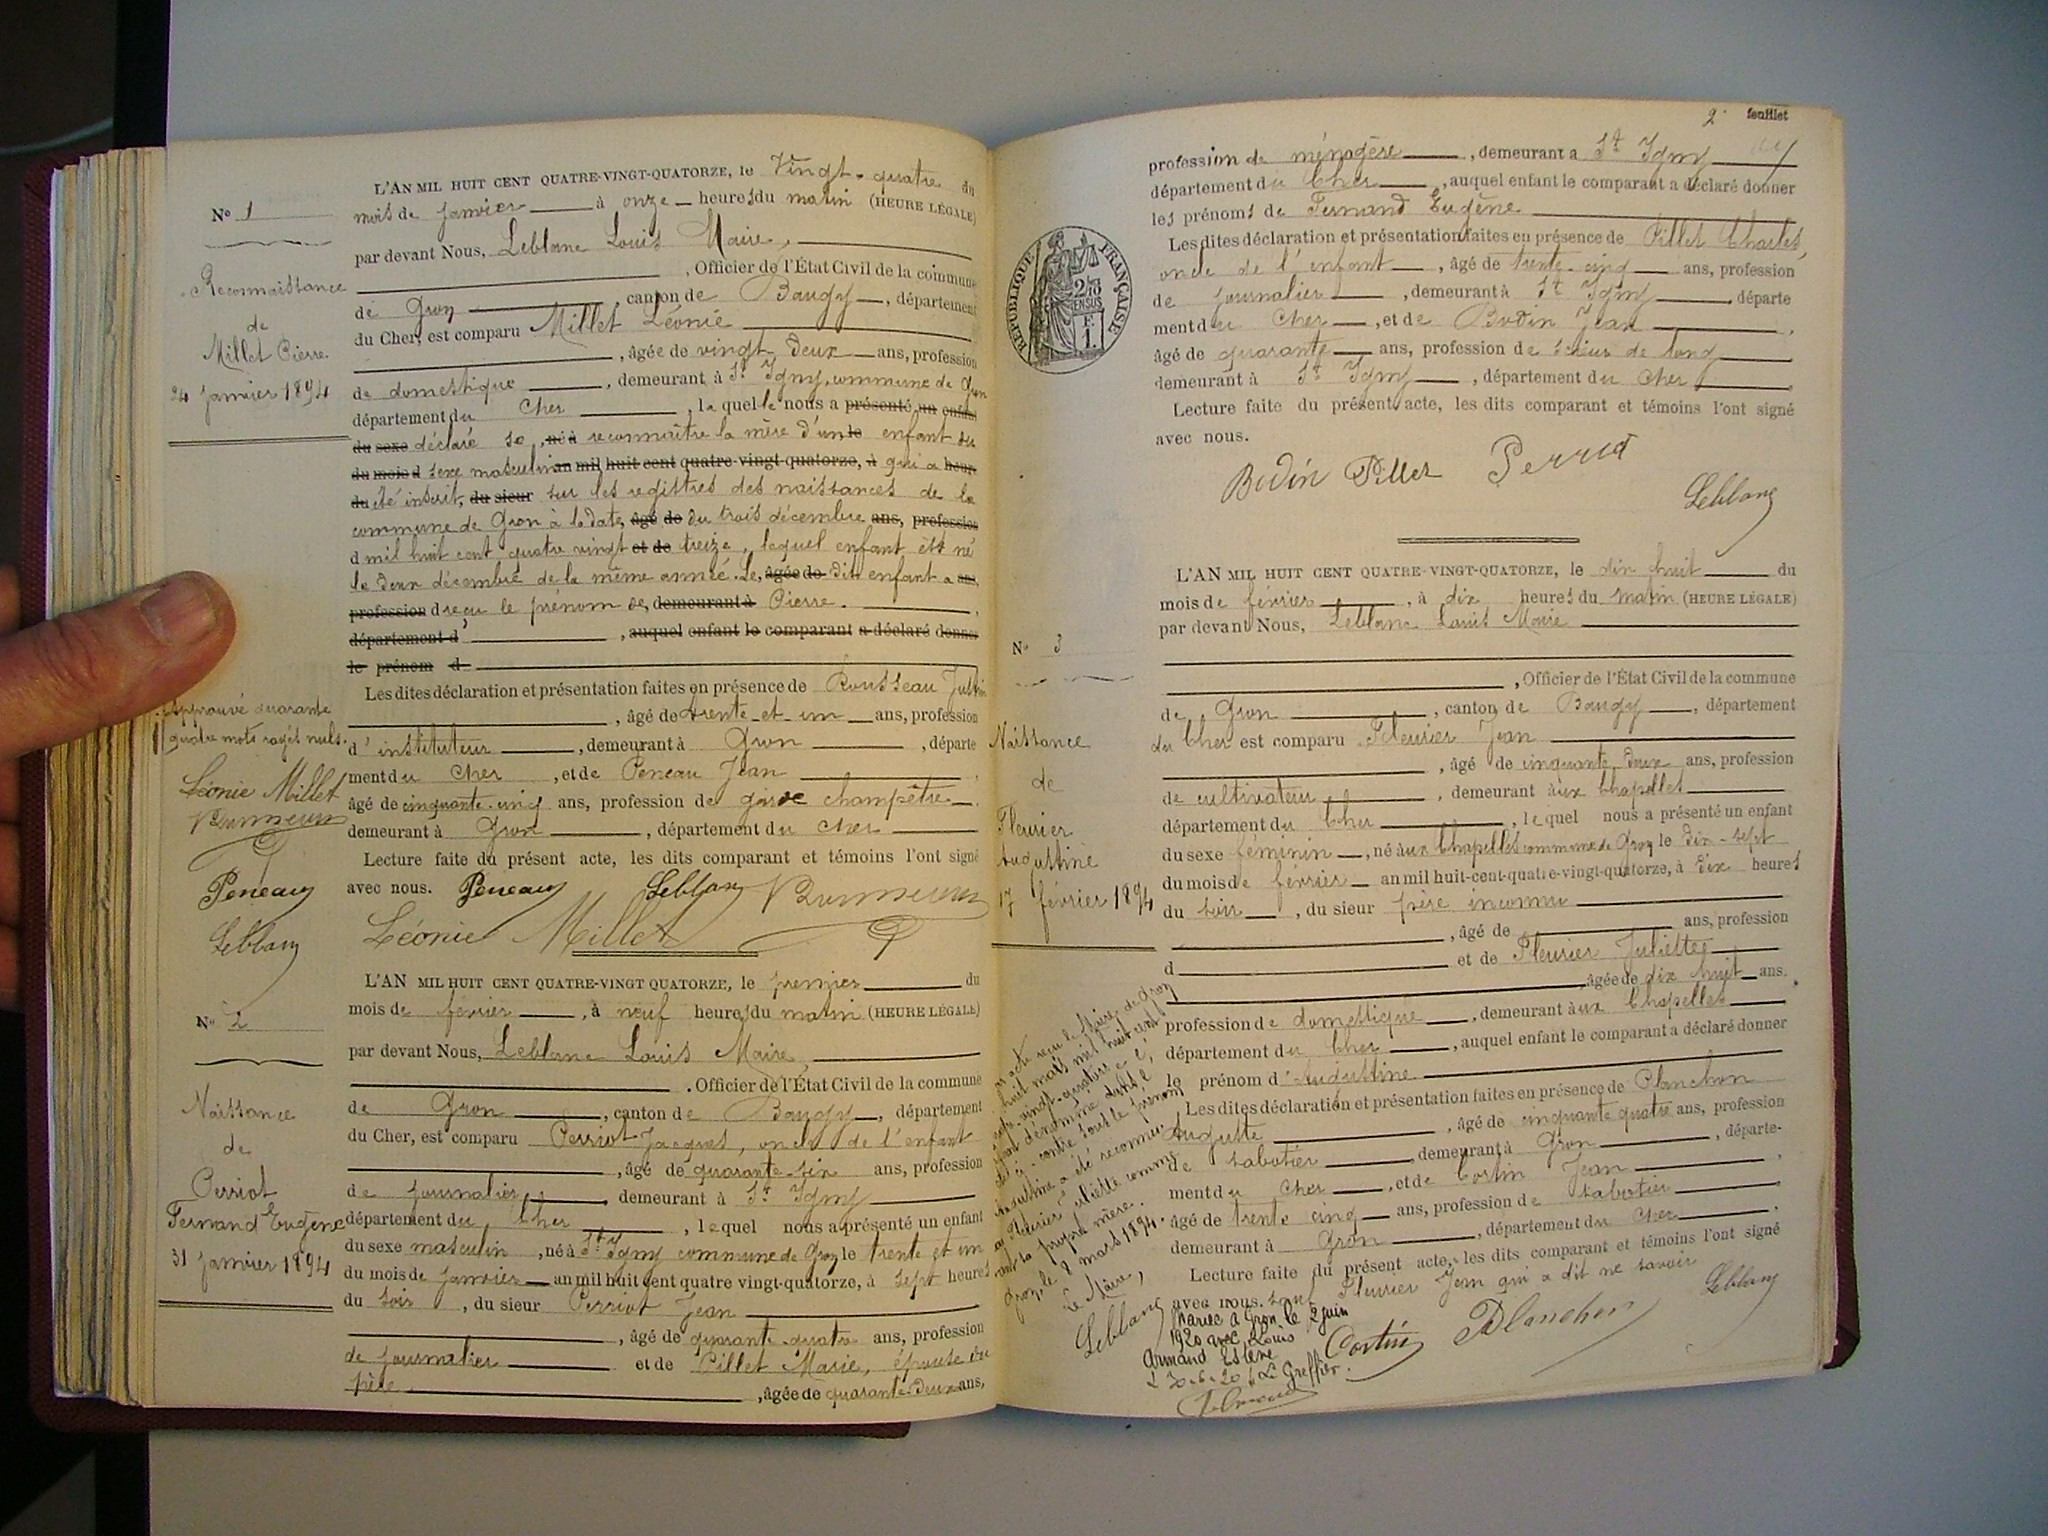 N° 1
Reconnaissance
de
Millet Pierre
24 janvier 1894
L'AN MIL HUIT CENT QUATRE-VINGT-QUATORZE, le Vingt-quatre du
mois de janvier à onze heures du matin (HEURE LÉGALE)
par devant Nous, Leblanc Louis Maire,
, Officier de l'État Civil de la commune
de Gron canton de Baugy, département
du Cher, est comparu Millet Léonie
, âgée de vingt-deux ans, profession
de domestique, demeurant à St Igny, commune de Gron
département du Cher, laquelle nous a présenté un enfant
du sexe déclaré se, né à reconnaître la mère d'un le enfant du
du mois d sexe masculin an mil huit cent quatre-vingt quatorze, à qui a heur
du été inscrit, du sieur sur les registres des naissances de la
commune de Gron à la date, âgé de du trois décembre ans, profession
d mil huit cent quatre vingt et de treize, lequel enfant est né
le deux décembre de la même année. Le, âgée de dit enfant a ans,
profession d reçu le prénom de, demeurant à Pierre.
département d', auquel enfant le comparant a déclaré donner
le prénom d
Les dites déclaration et présentation faites en présence de Rousseau Justin
, âgé de trente-et-un ans, profession
d'instituteur, demeurant à Gron, départe
ment du Cher, et de Peneau Jean
âgé de cinquante-cinq ans, profession de garde champêtre
demeurant à Gron, département du Cher
Lecture faite du présent acte, les dits comparant et témoins l'ont signé
avec nous. Peneau Leblanc Rousseau
Léonie Millet
Approuvé quarante
quatre mots rayés nuls.
Léonie Millet
Rousseau
Peneau
Leblanc
N° 2
Naissance
de
Perriot
Fernand Eugène
31 janvier 1894
L'AN MIL HUIT CENT QUATRE-VINGT QUATORZE, le premier du
mois de février, à neuf heures du matin (HEURE LÉGALE)
par devant Nous, Leblanc Louis Maire
. Officier de l'État Civil de la commune
de Gron, canton de Baugy, département
du Cher, est comparu Perriot Jacques, oncle de l'enfant
, âgé de quarante-six ans, profession
de journalier demeurant à St Igny
département du Cher, lequel nous a présenté un enfant
du sexe masculin, né à St Igny commune de Gron le trente et un
du mois de janvier an mil huit cent quatre vingt-quatorze, à sept heures
du soir, du sieur Perriot Jean
, âgé de quarante-quatre ans, profession
de journalier et de Pillet Marie, épouse du
père, âgée de quarante-deux ans,
2e feuillet
profession de ménagère, demeurant à St Igny
département du Cher, auquel enfant le comparant a déclaré donner
les prénoms de Fernand Eugène
Les dites déclaration et présentation faites en présence de Pillet Charles,
oncle de l'enfant, âgé de trente-cinq ans, profession
de journalier, demeurant à St Igny départe
ment du Cher, et de Bodin Jean
âgé de quarante ans, profession de scieur de long
demeurant à St Igny, département du Cher
Lecture faite du présent acte, les dits comparant et témoins l'ont signé
avec nous.
Bodin Pillet Perriot
Leblanc
RÉPUBLIQUE FRANÇAISE
2/10
EN SUS
F.
1.
N° 3
Naissance
de
Fleurier
Augustine
17 février 1894
L'AN MIL HUIT CENT QUATRE-VINGT-QUATORZE, le dix huit du
mois de février, à dix heures du matin (HEURE LÉGALE)
par devant Nous, Leblanc Louis Maire
, Officier de l'État Civil de la commune
de Gron, canton de Baugy, département
du Cher est comparu Fleurier Jean
, âgé de cinquante deux ans, profession
de cultivateur, demeurant aux Chapelles
département du Cher, lequel nous a présenté un enfant
du sexe féminin, né aux Chapelles commune de Gron le dix-sept
du mois de février an mil huit-cent-quatre-vingt-quatorze, à dix heures
du soir, du sieur père inconnu
, âgé de ans, profession
d et de Fleurier Juliette
âgée de dix huit ans.
profession de domestique, demeurant aux Chapelles
département du Cher, auquel enfant le comparant a déclaré donner
le prénom d'Augustine
Les dites déclaration et présentation faites en présence de Planchon
Auguste, âgé de cinquante quatre ans, profession
de sabotier demeurant à Gron, départe-
ment du Cher, et de Cortin Jean
âgé de trente cinq ans, profession de sabotier
demeurant à Gron, département du Cher
Lecture faite du présent acte, les dits comparant et témoins l'ont signé
avec nous. sauf Fleurier Jean qui a dit ne savoir
Leblanc
Cortin Planchon
acte reçu le Maire de Gron
huit mars mil huit cent
vingt-quatorze
dénommé
ci-contre sous le prénom
Augustine a été reconnue
Fleurier Juliette comme
sa propre mère.
Gron, le 8 mars 1894.
Le Maire,
Leblanc
Mariée à Gron le 2 juin
1920 avec Louis
Armand Estève
30-6-20 Le Greffier.